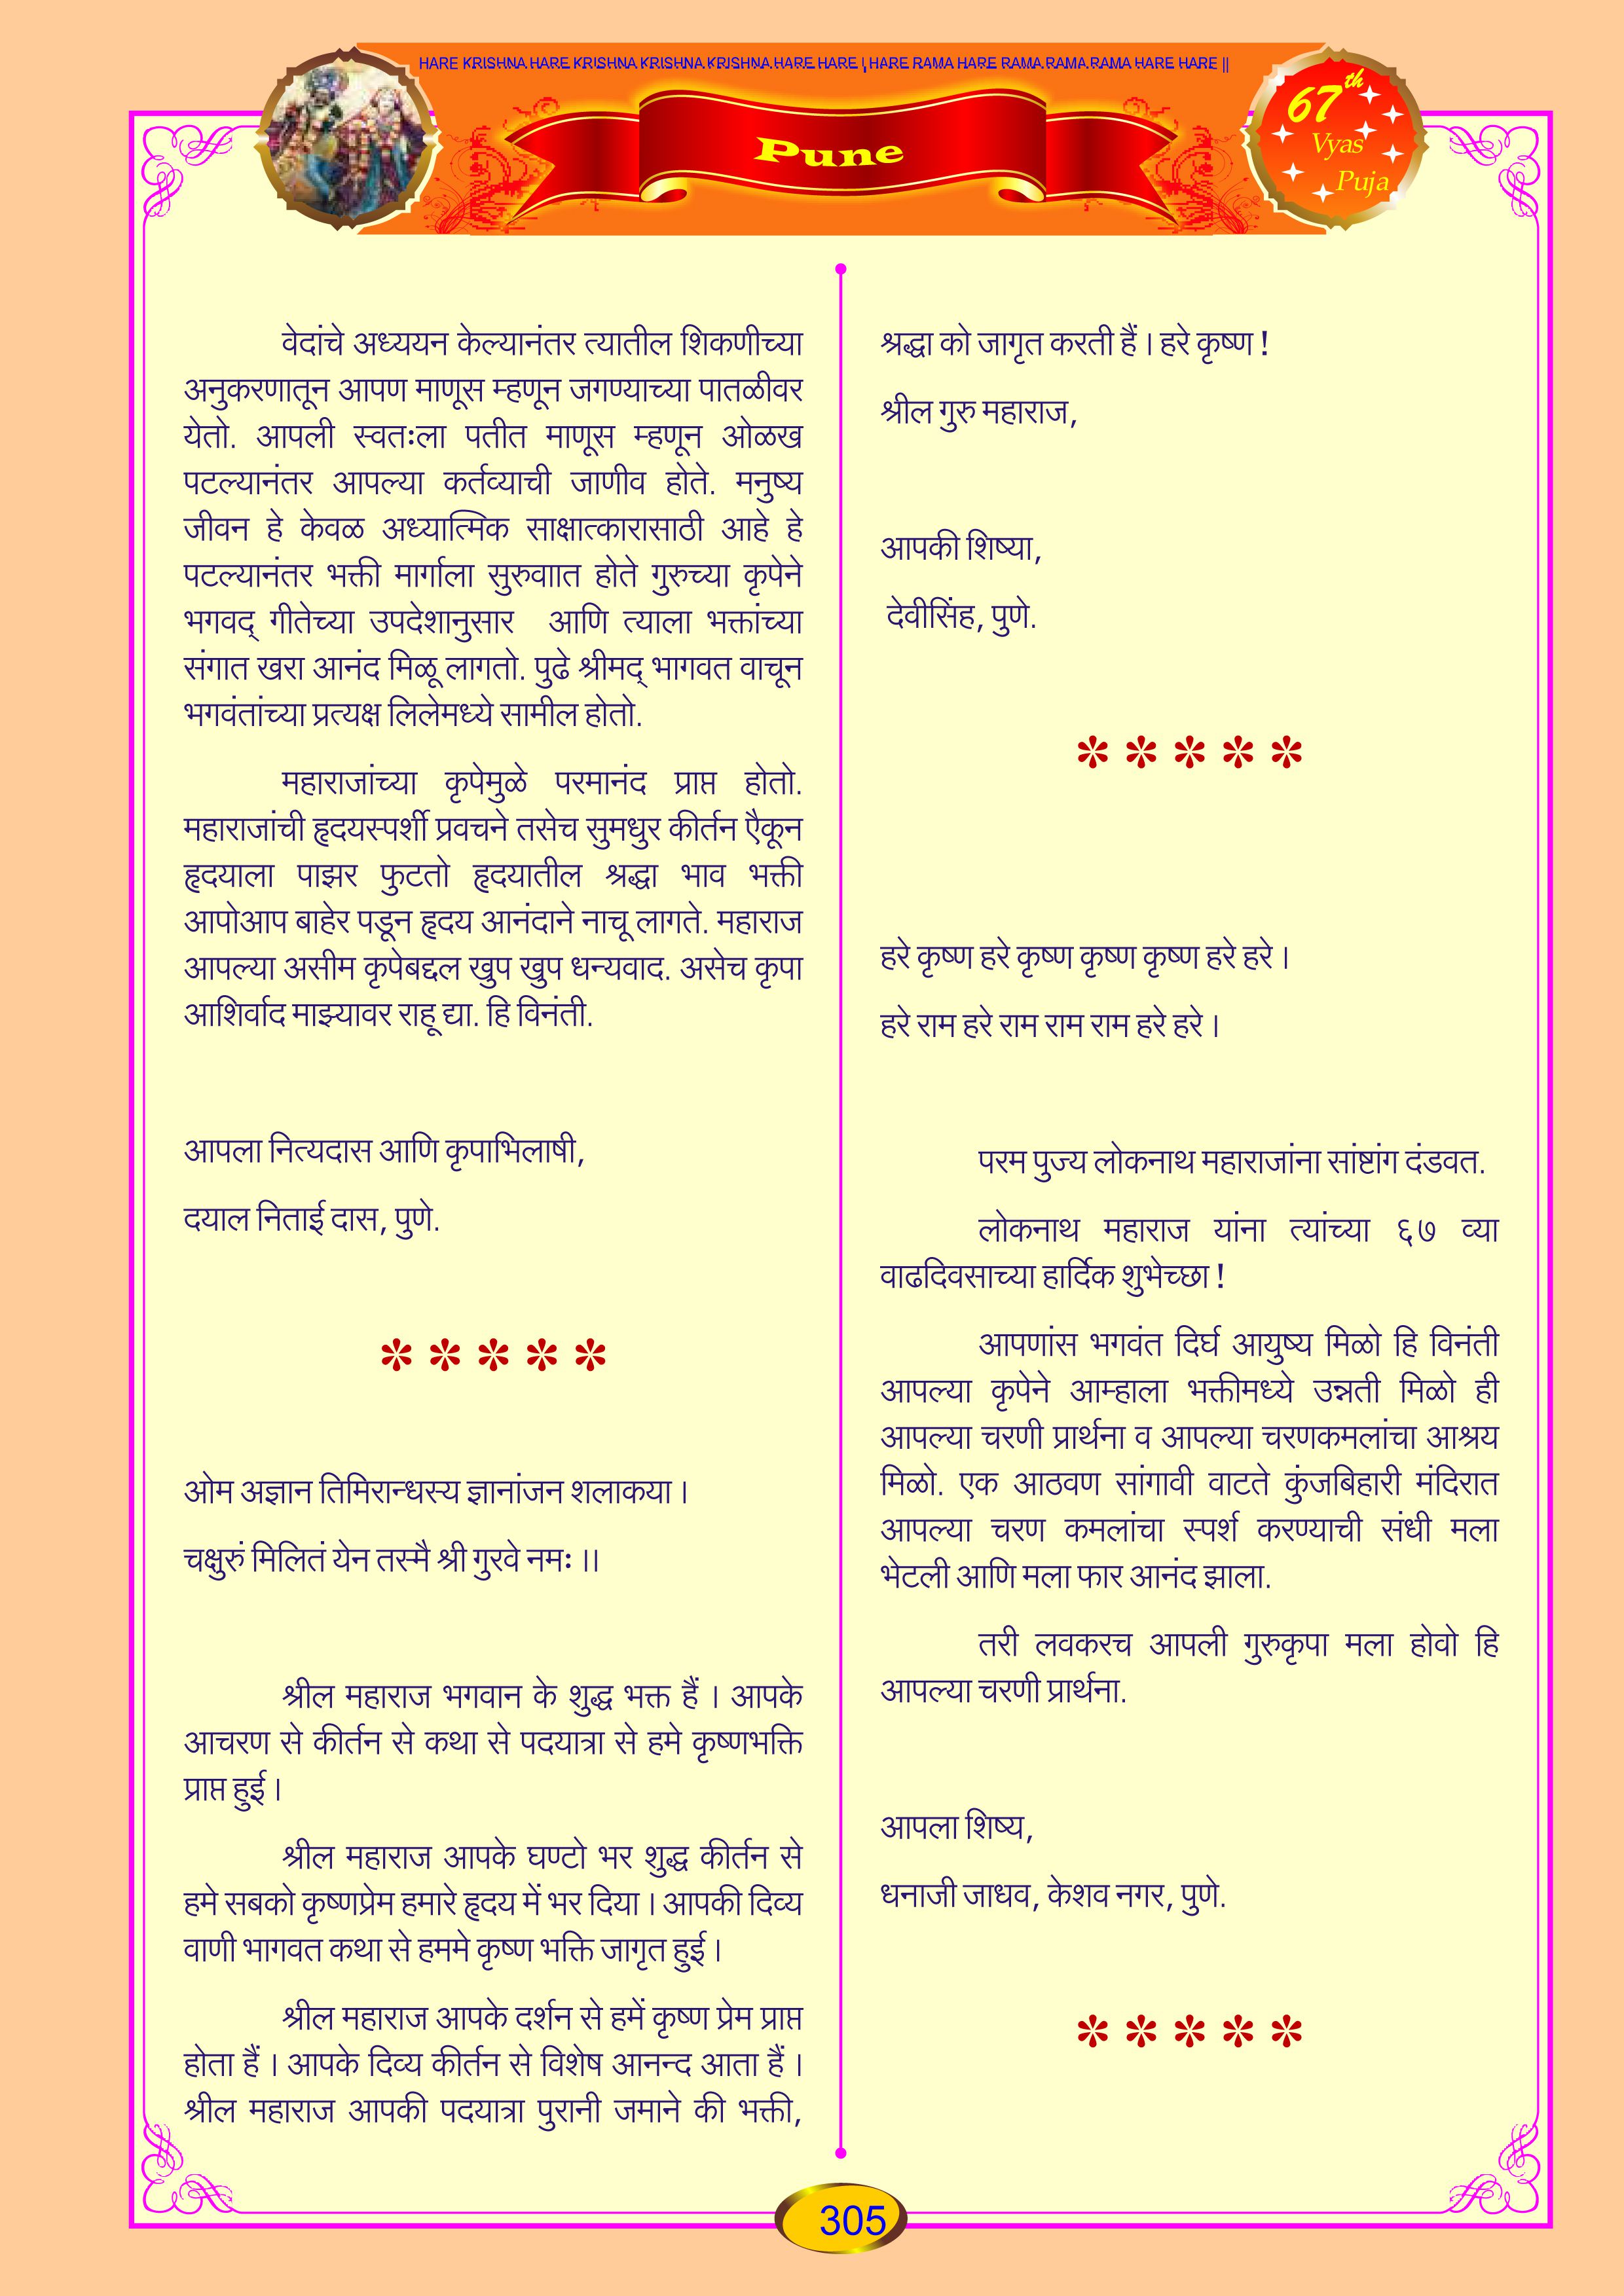 HARE KRISHNA HARE KRISHNA KRISHNA KRISHNA HARE HARE | HARE RAMA HARE RAMA RAMA RAMA HARE HARE ||
Pune
67th
Vyas
Puja
वेदांचे अध्ययन केल्यानंतर त्यातील शिकणीच्या
अनुकरणातून आपण माणूस म्हणून जगण्याच्या पातळीवर
येतो. आपली स्वतःला पतीत माणूस म्हणून ओळख
पटल्यानंतर आपल्या कर्तव्याची जाणीव होते. मनुष्य
जीवन हे केवळ अध्यात्मिक साक्षात्कारासाठी आहे हे
पटल्यानंतर भक्ती मार्गाला सुरुवाात होते गुरुच्या कृपेने
भगवद् गीतेच्या उपदेशानुसार आणि त्याला भक्तांच्या
संगात खरा आनंद मिळू लागतो. पुढे श्रीमद् भागवत वाचून
भगवंतांच्या प्रत्यक्ष लिलेमध्ये सामील होतो.
महाराजांच्या कृपेमुळे परमानंद प्राप्त होतो.
महाराजांची हृदयस्पर्शी प्रवचने तसेच सुमधुर कीर्तन एैकून
हृदयाला पाझर फुटतो हृदयातील श्रद्धा भाव भक्ती
आपोआप बाहेर पडून हृदय आनंदाने नाचू लागते. महाराज
आपल्या असीम कृपेबद्दल खुप खुप धन्यवाद. असेच कृपा
आशिर्वाद माझ्यावर राहू द्या. हि विनंती.
आपला नित्यदास आणि कृपाभिलाषी,
दयाल निताई दास, पुणे.
* * * * *
ओम अज्ञान तिमिरान्धस्य ज्ञानांजन शलाकया ।
चक्षुरुं मिलितं येन तस्मै श्री गुरवे नमः ।।
श्रील महाराज भगवान के शुद्ध भक्त हैं । आपके
आचरण से कीर्तन से कथा से पदयात्रा से हमे कृष्णभक्ति
प्राप्त हुई ।
श्रील महाराज आपके घण्टो भर शुद्ध कीर्तन से
हमे सबको कृष्णप्रेम हमारे हृदय में भर दिया । आपकी दिव्य
वाणी भागवत कथा से हममे कृष्ण भक्ति जागृत हुई ।
श्रील महाराज आपके दर्शन से हमें कृष्ण प्रेम प्राप्त
होता हैं । आपके दिव्य कीर्तन से विशेष आनन्द आता हैं ।
श्रील महाराज आपकी पदयात्रा पुरानी जमाने की भक्ती,
श्रद्धा को जागृत करती हैं । हरे कृष्ण !
श्रील गुरु महाराज,
आपकी शिष्या,
देवीसिंह, पुणे.
* * * * *
हरे कृष्ण हरे कृष्ण कृष्ण कृष्ण हरे हरे ।
हरे राम हरे राम राम राम हरे हरे ।
परम पुज्य लोकनाथ महाराजांना सांष्टांग दंडवत.
लोकनाथ महाराज यांना त्यांच्या ६७ व्या
वाढदिवसाच्या हार्दिक शुभेच्छा !
आपणांस भगवंत दिर्घ आयुष्य मिळो हि विनंती
आपल्या कृपेने आम्हाला भक्तीमध्ये उन्नती मिळो ही
आपल्या चरणी प्रार्थना व आपल्या चरणकमलांचा आश्रय
मिळो. एक आठवण सांगावी वाटते कुंजबिहारी मंदिरात
आपल्या चरण कमलांचा स्पर्श करण्याची संधी मला
भेटली आणि मला फार आनंद झाला.
तरी लवकरच आपली गुरुकृपा मला होवो हि
आपल्या चरणी प्रार्थना.
आपला शिष्य,
धनाजी जाधव, केशव नगर, पुणे.
* * * * *
305